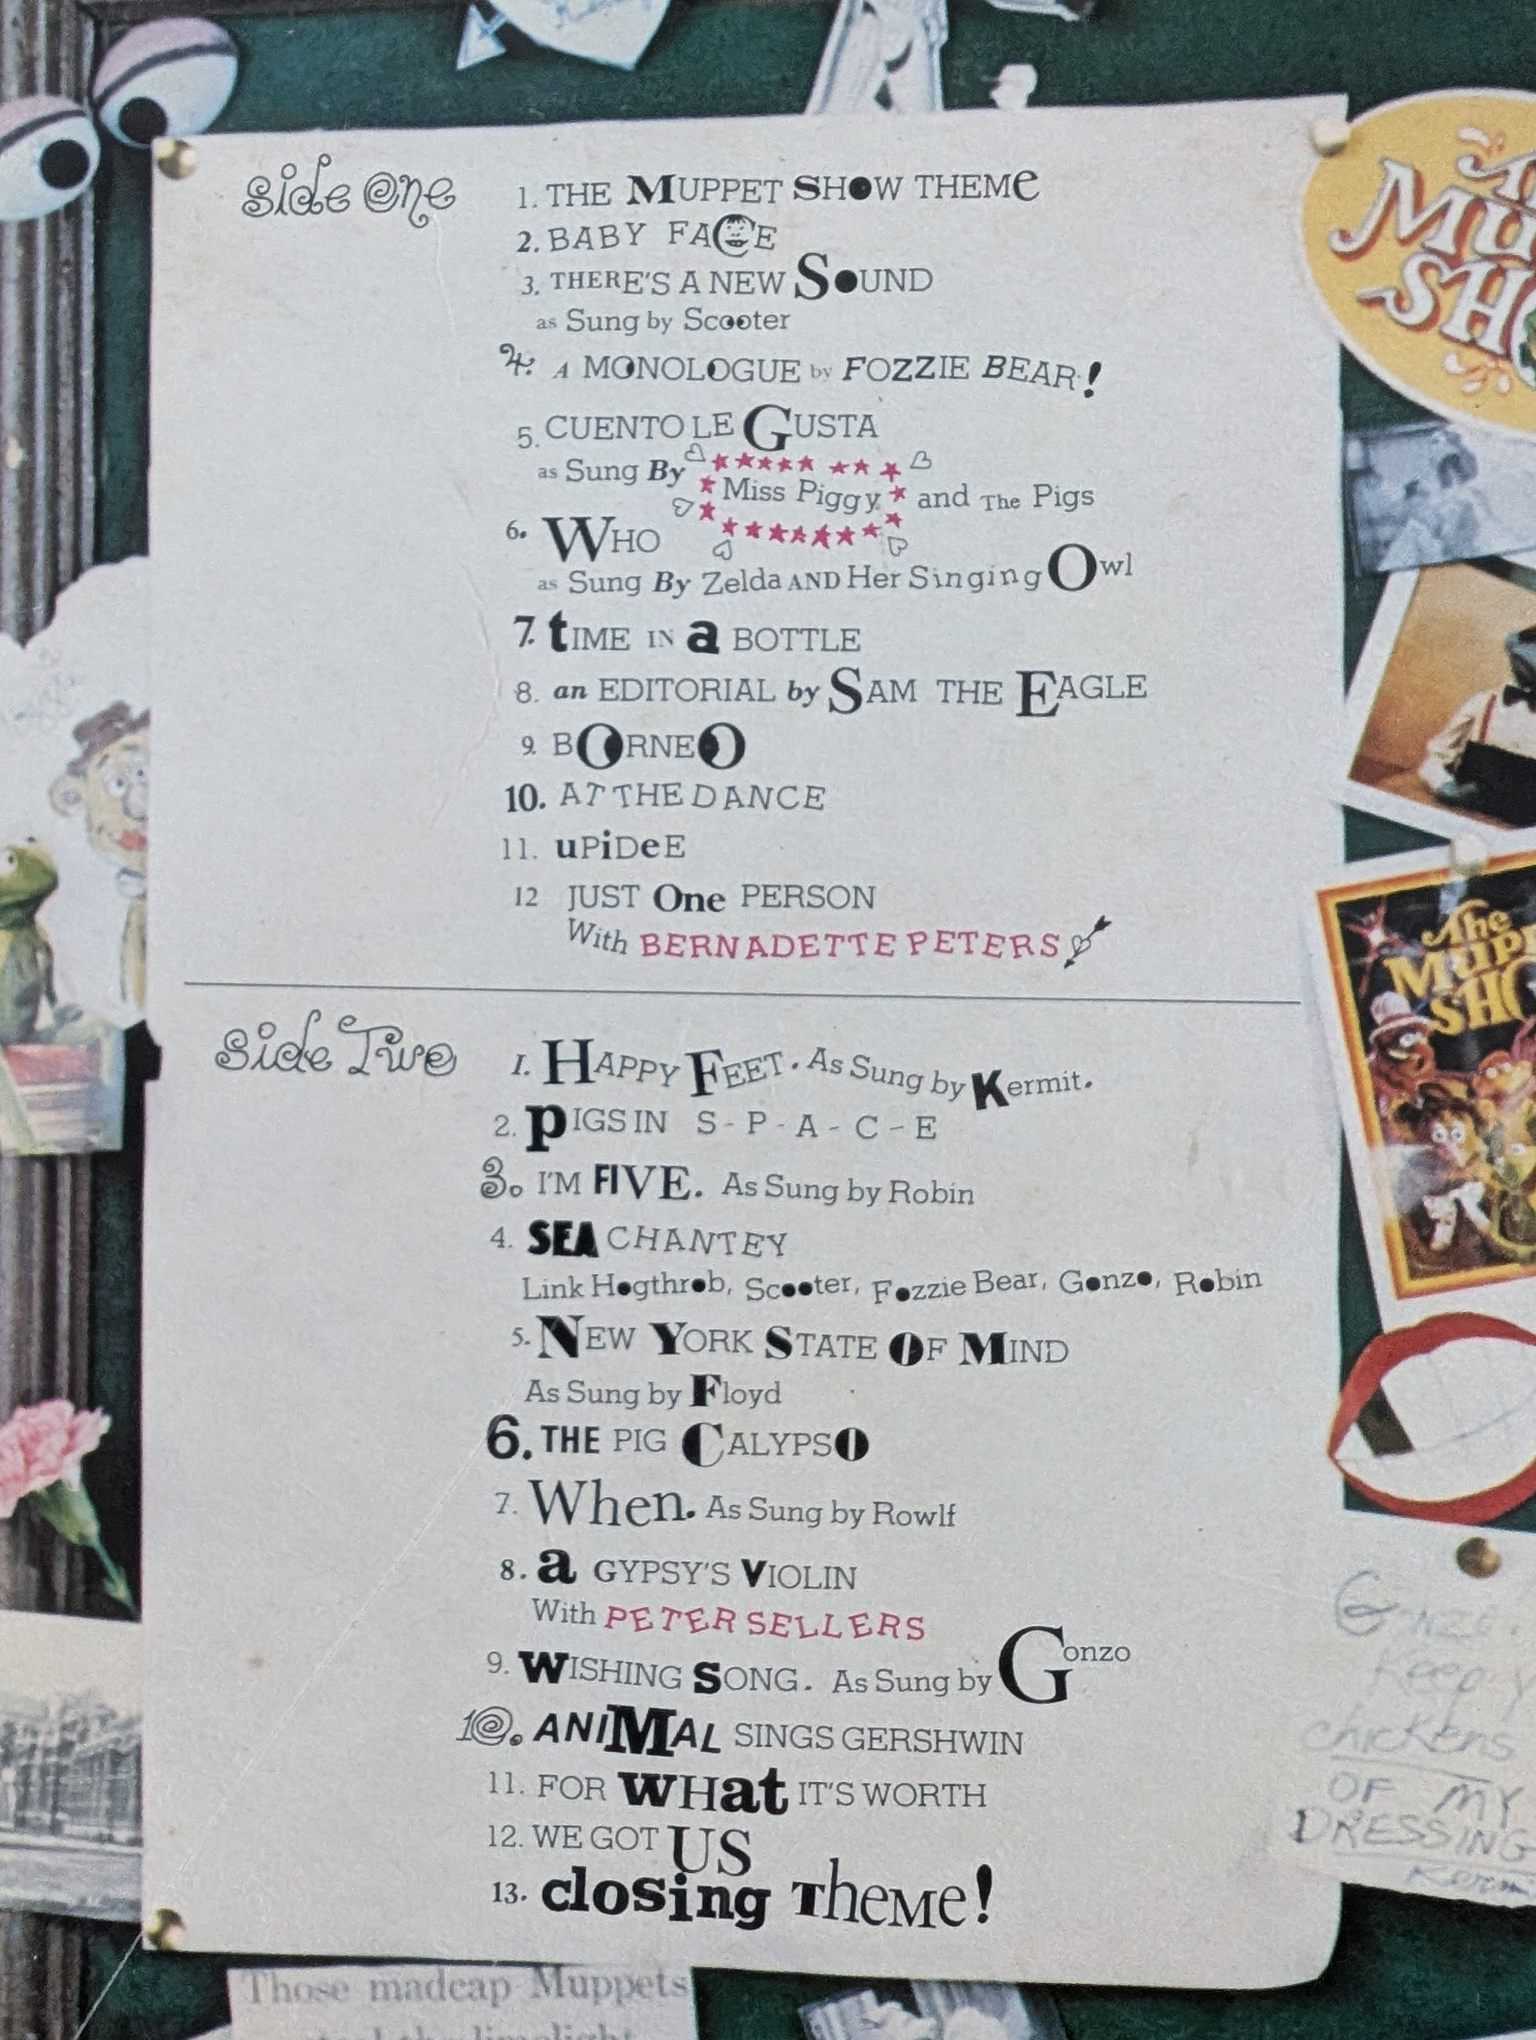 Side One
1. THE MUPPET SHOW THEMe
2. BABY FACE
3. THERE'S A NEW SOUND
as Sung by Scooter
4. A MONOLOGUE by FOZZIE BEAR!
5. CUENTO LE GUSTA
as Sung By Miss Piggy and The Pigs
6. WHO
as Sung By Zelda AND Her Singing Owl
7. tIME IN a BOTTLE
8. an EDITORIAL by SAM THE EAGLE
9. BORNEO
10. AT THE DANCE
11. uPiDeE
12 JUST One PERSON
With BERNADETTE PETERS
Side Two
1. HAPPY FEET. As Sung by Kermit.
2. pIGS IN S-P-A-C-E
3. I'M FIVE. As Sung by Robin
4. SEA CHANTEY
Link Hogthrob, Scooter, Fozzie Bear, Gonzo, Robin
5. NEW YORK STATE OF MIND
As Sung by Floyd
6. THE PIG CALYPSO
7. When. As Sung by Rowlf
8. a GYPSY'S VIOLIN
With PETER SELLERS
9. WISHING SONG. As Sung by Gonzo
10. ANiMAL SINGS GERSHWIN
11. FOR wHat IT'S WORTH
12. WE GOT US
13. closing TheMe!
The
MUPP
SHO
chickens
OF MY
DRESSING
Those madcap Muppets